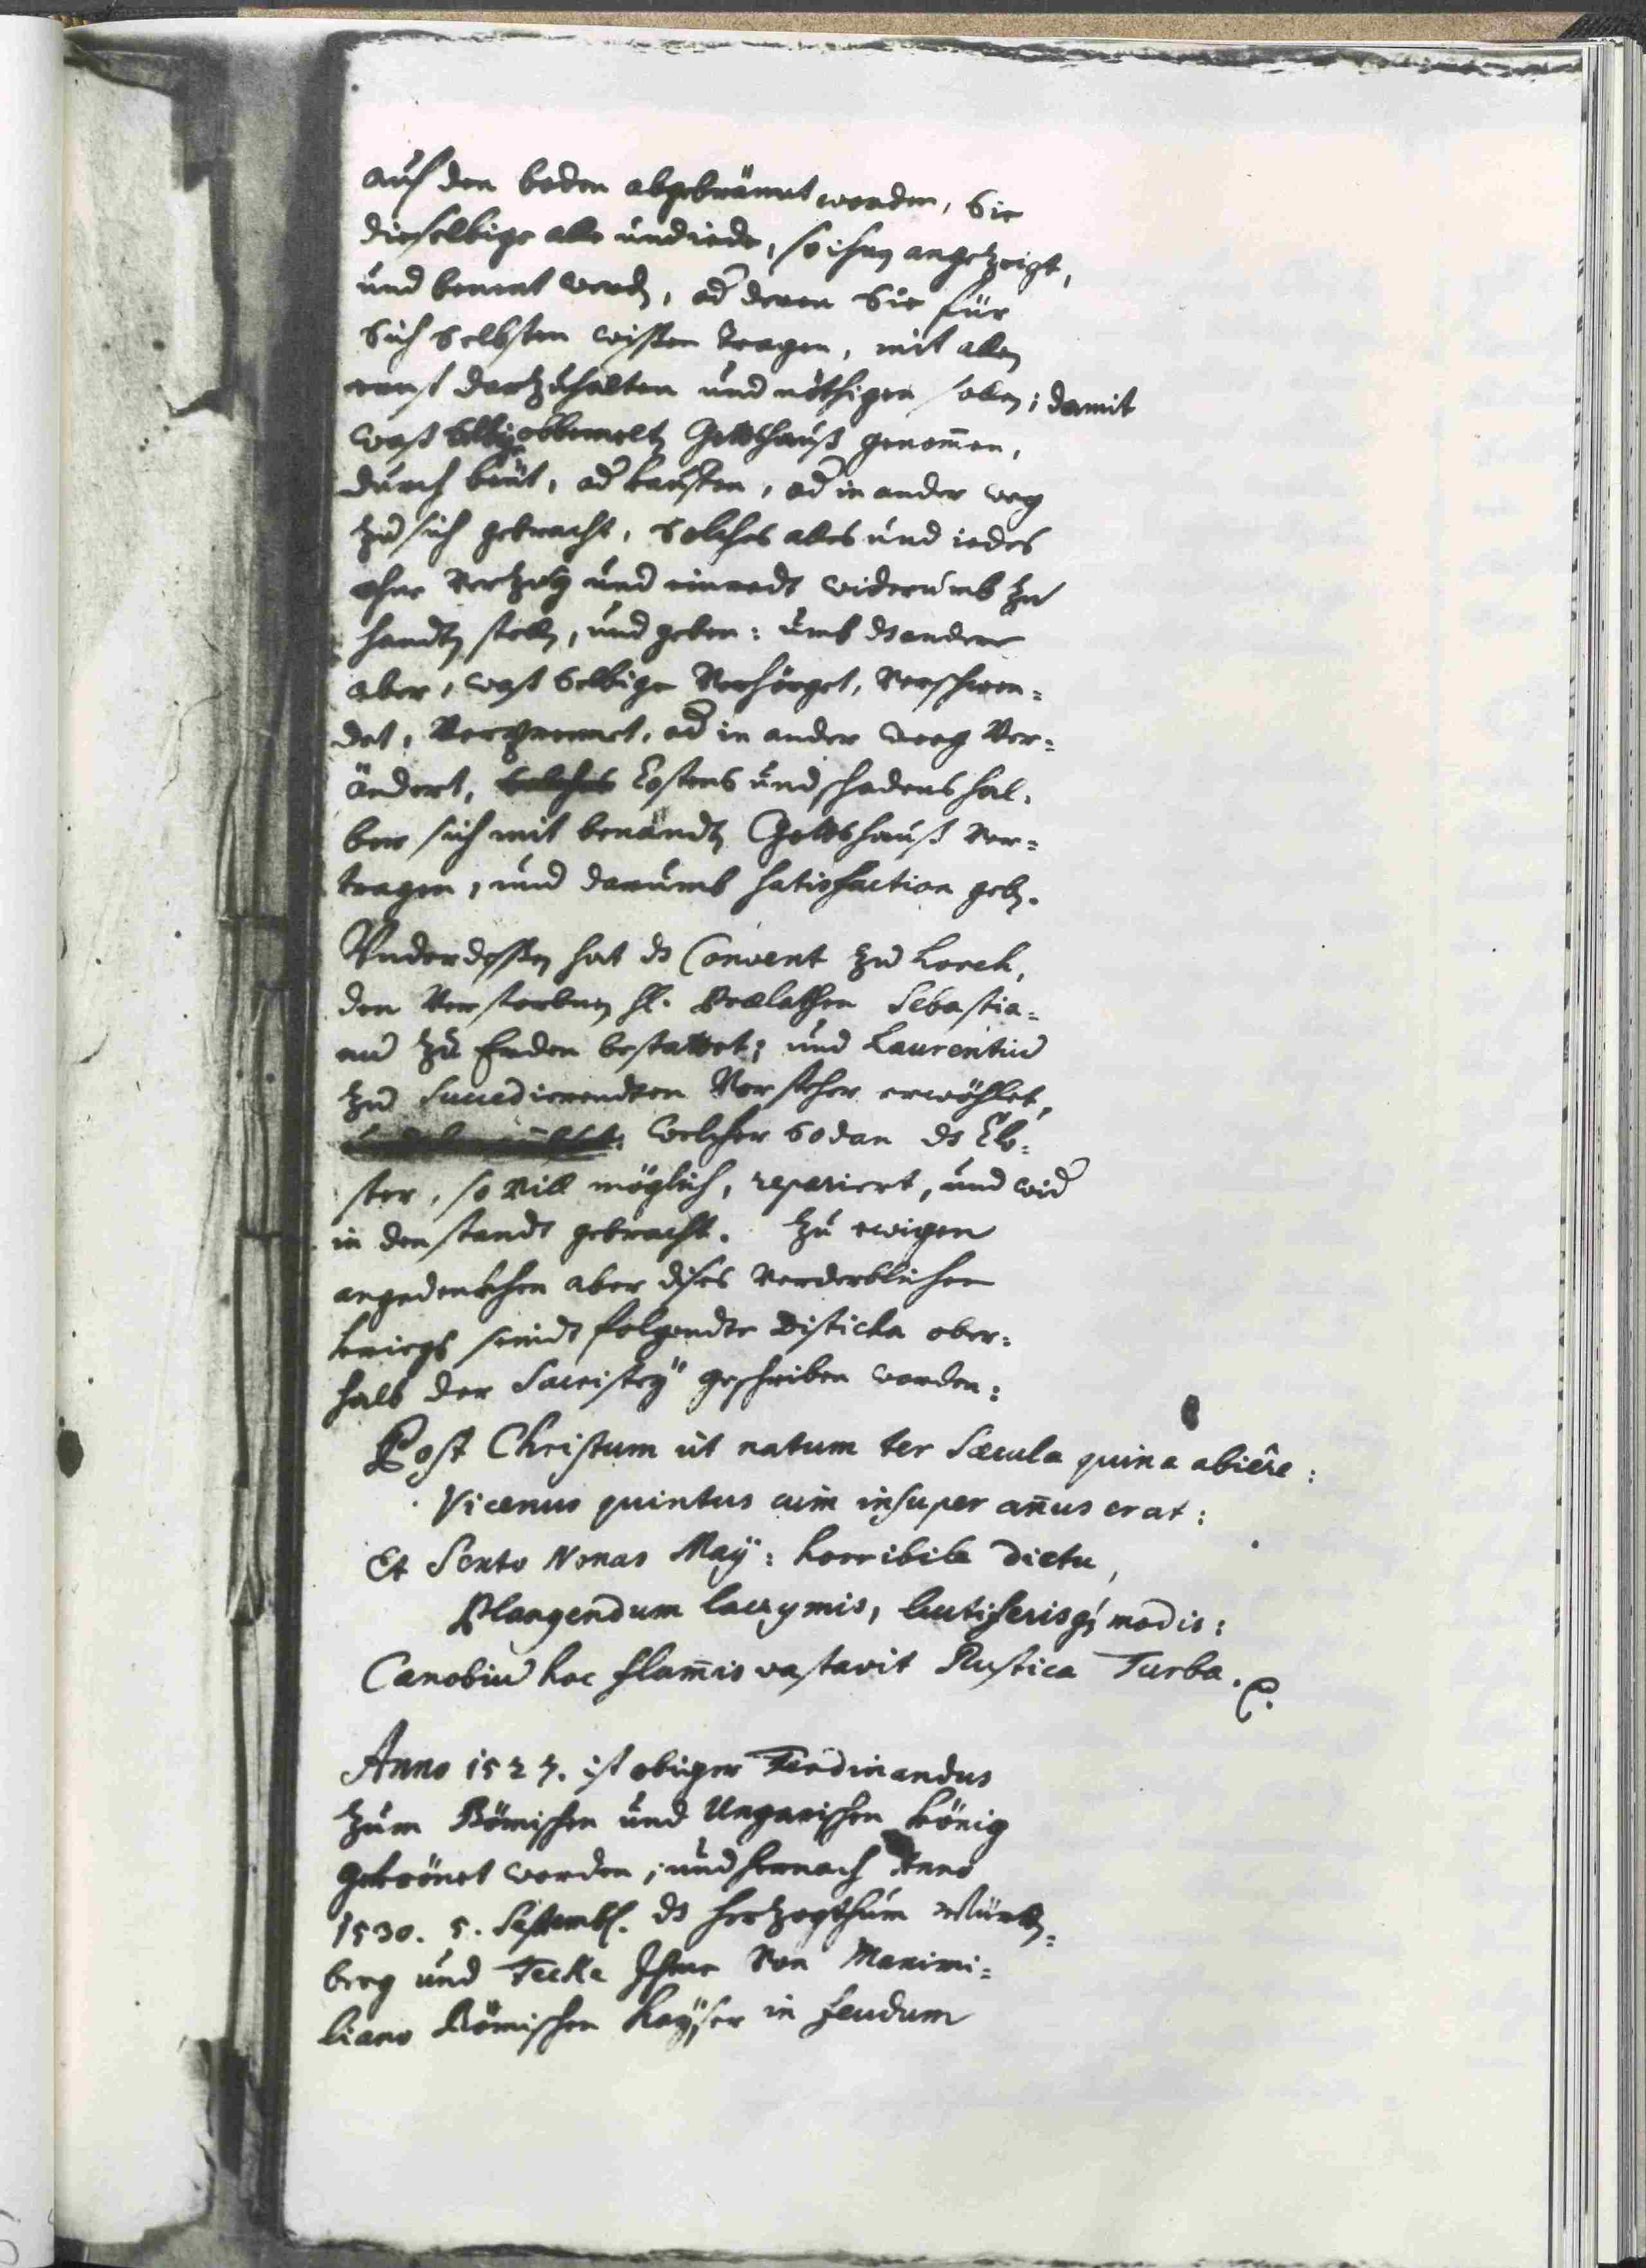 auf den boden abgebränt worden, Sie
dieselbige alle und iede, so ihnen angetzeigt,
und benent werden, od deren Sie für
Sich Selbsten wissen tragen, mit allen
ernst dartzuhalten und nöthigen sollen; damit
waß Selbige obbemelten Gottshauß genom̄en,
durch beüt, od kauffen, od in ander weg
zu sich gebracht, Solches alles und iedes
ohne Vertzug und einredt widerumb zu
handen stellen, und geben: umb ds andere
aber, waß Selbige Verhörget, Verschwen=
det, od in ander weeg Ver=
ändert, Costens und schadens hal=
ber sich mit benandten Gottshauß ver=
tragen, und darumb satisfaction geben.
Underdessen hat ds Convent zu Lorch,
den Verstorbnen H. Prælathen Sebastia=
num zu Erden bestattet; und Laurentium
zu Succedierendten Vorsteher erwöhlet,
welcher Sodan ds Clo=
ster, so vill möglich, repariert, und wid
in den standt gebracht. Zu ewigen
angedenkhen aber dises verderblichen
kriegs seindt folgendte Disticha ober=
halb der Sacristey geschriben worden:
Post Christum ut natum ter Sæcula quina abiêre:
Vicenus quintus cum insuper an̄us erat:
Et Sexto Nonas Maÿ: horribile dictu,
Plangendum lacrymis, luctiferisq; modis:
Cænobium hoc flam̄is vastavit Rustica Turba.
Anno 1527. ist obiger Ferdinandus
zum Römischen und Ungarischen König
gekrönet worden; und hernach Anno
1530. 5. Septemb. ds Hertzogthum Würten=
berg und Tecka Ihme von Maximi=
liano Römischen Kaÿser in feudum